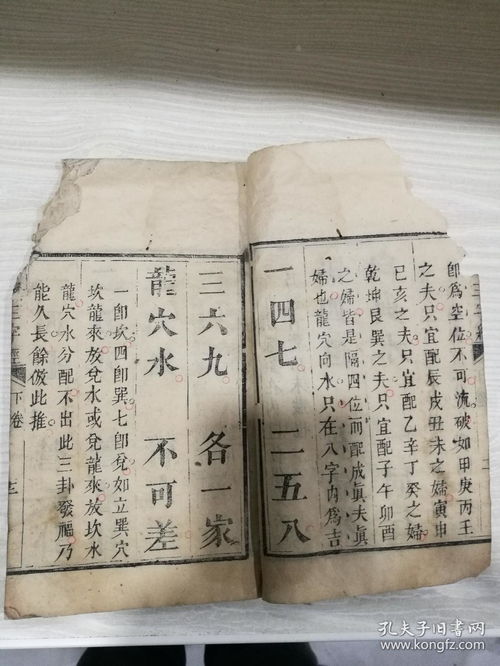 卽爲空位不可流破如甲庚丙壬
之夫只宜配辰戌丑未之婦寅申
巳亥之夫只宜配乙辛丁癸之婦
乾坤艮巽之夫只宜配子午卯酉
之婦皆是隔四位而配成眞夫眞
婦也龍穴向水只在八字內爲吉
一四七 二五八
三六九 各一家
龍穴水 不可差
一卽坎四卽巽七卽兌如立巽穴
坎龍來放兌水或兌龍來放坎水
龍穴水分配不出此三卦發福乃
能久長餘倣此推
三字經 下卷 十三
孔夫子旧書网
www.kongfz.com